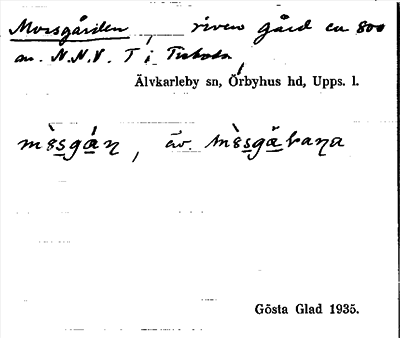 Morsgården, riven gård ca 800
m. N.N.V. T i
Älvkarleby sn, Örbyhus hd, Upps. l.
mèsgán, äv.
Gösta Glad 1935.